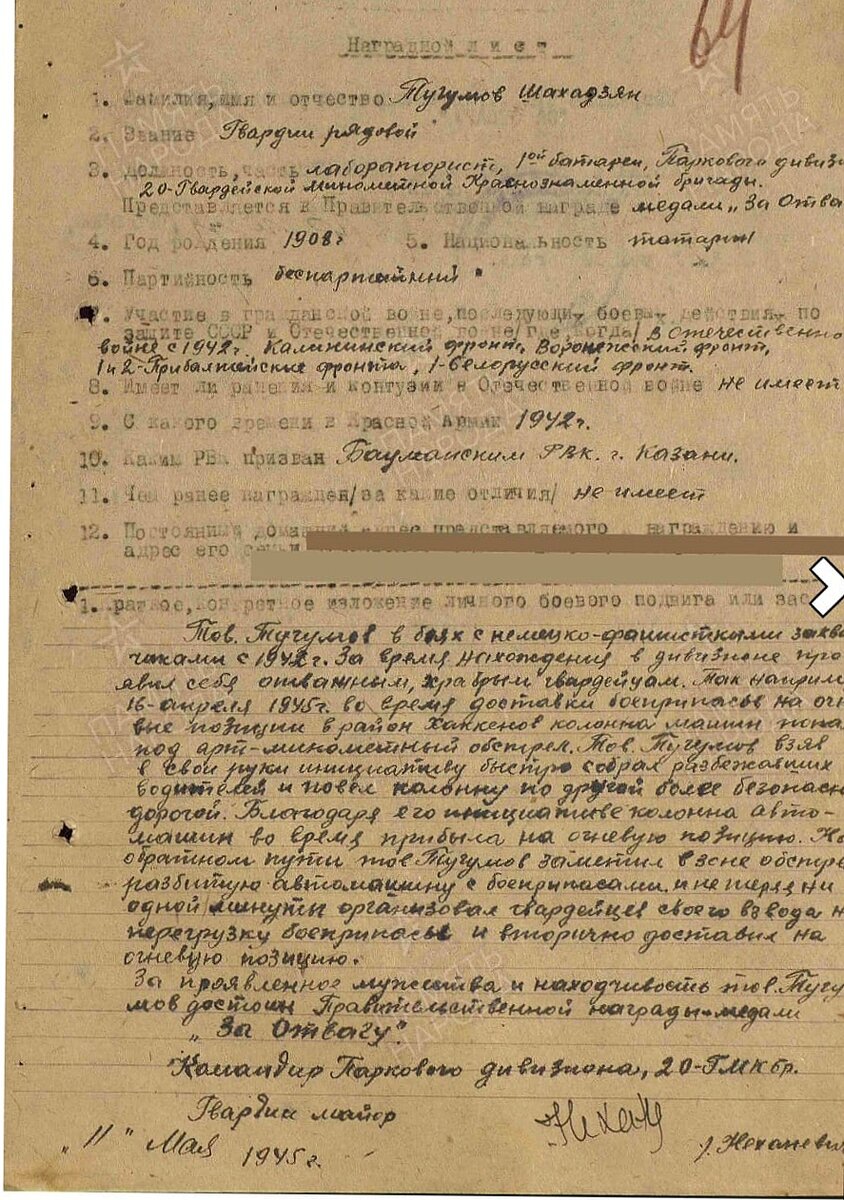 64
Наградной лист
1. Фамилия, имя и отчество Тугумов Шахадзян
2. Звание Гвардии рядовой
3. Должность, часть лабораторист, 1ой батареи, Паркового дивизи
20-Гвардейской минометной Краснознаменной бригады.
Представляется к Правительственной награде медали „За Отва
4. Год рождения 1908г 5. Национальность татарин
6. Партийность беспартийный
7. Участие в гражданской войне, последующих боевых действиях по
защите СССР и Отечественной войне/где, когда/ в Отечественно
войне с 1942г. Калининский фронт, Воронежский фронт,
1 и 2-Прибалтийские фронты, 1-Белорусский фронт.
8. Имеет ли ранения и контузии в Отечественной войне не имеет
9. С какого времени в Красной Армии 1942г.
10. Каким РВК призван Бауманским РВК. г. Казани.
11. Чем ранее награжден/за какие отличия/ не имеет
12. Постоянный домашний адрес представляемого к награждению и
адрес его семьи
1. раткое, конкретное изложение личного боевого подвига или зас
Тов. Тугумов в боях с немецко-фашисткими захва
чиками с 1942г. За время нахождения в дивизионе про
явил себя отважным, храбрым гвардейцам. Так наприм
16-апреля 1945г. во время доставки боеприпасы на огн
вые позиции в район Хаккенов колонна машин попа
под арт-минометный обстрел. Тов. Тугумов взяв
в свои руки инициативу быстро собрал разбежавших
водителей и повел колонну по другой более безопасн
дорогой. Благодаря его инициативе колонна авто-
машин во время прибыла на огневую позицию. На
обратном пути тов. Тугумов заметил в зоне обстре
разбитую автомашину с боеприпасами и не теряя ни
одной минуты организовал гвардейцев своего взвода н
перегрузку боеприпасы и вторично доставил на
огневую позицию.
За проявленное мужества и находчивость тов. Тугу
мов достоин Правительственной награды-медали
„За Отвагу".
Командир Паркового дивизиона, 20-ГМКбр.
Гвардии майор
/.Неханевич
„11" Мая 1945г.